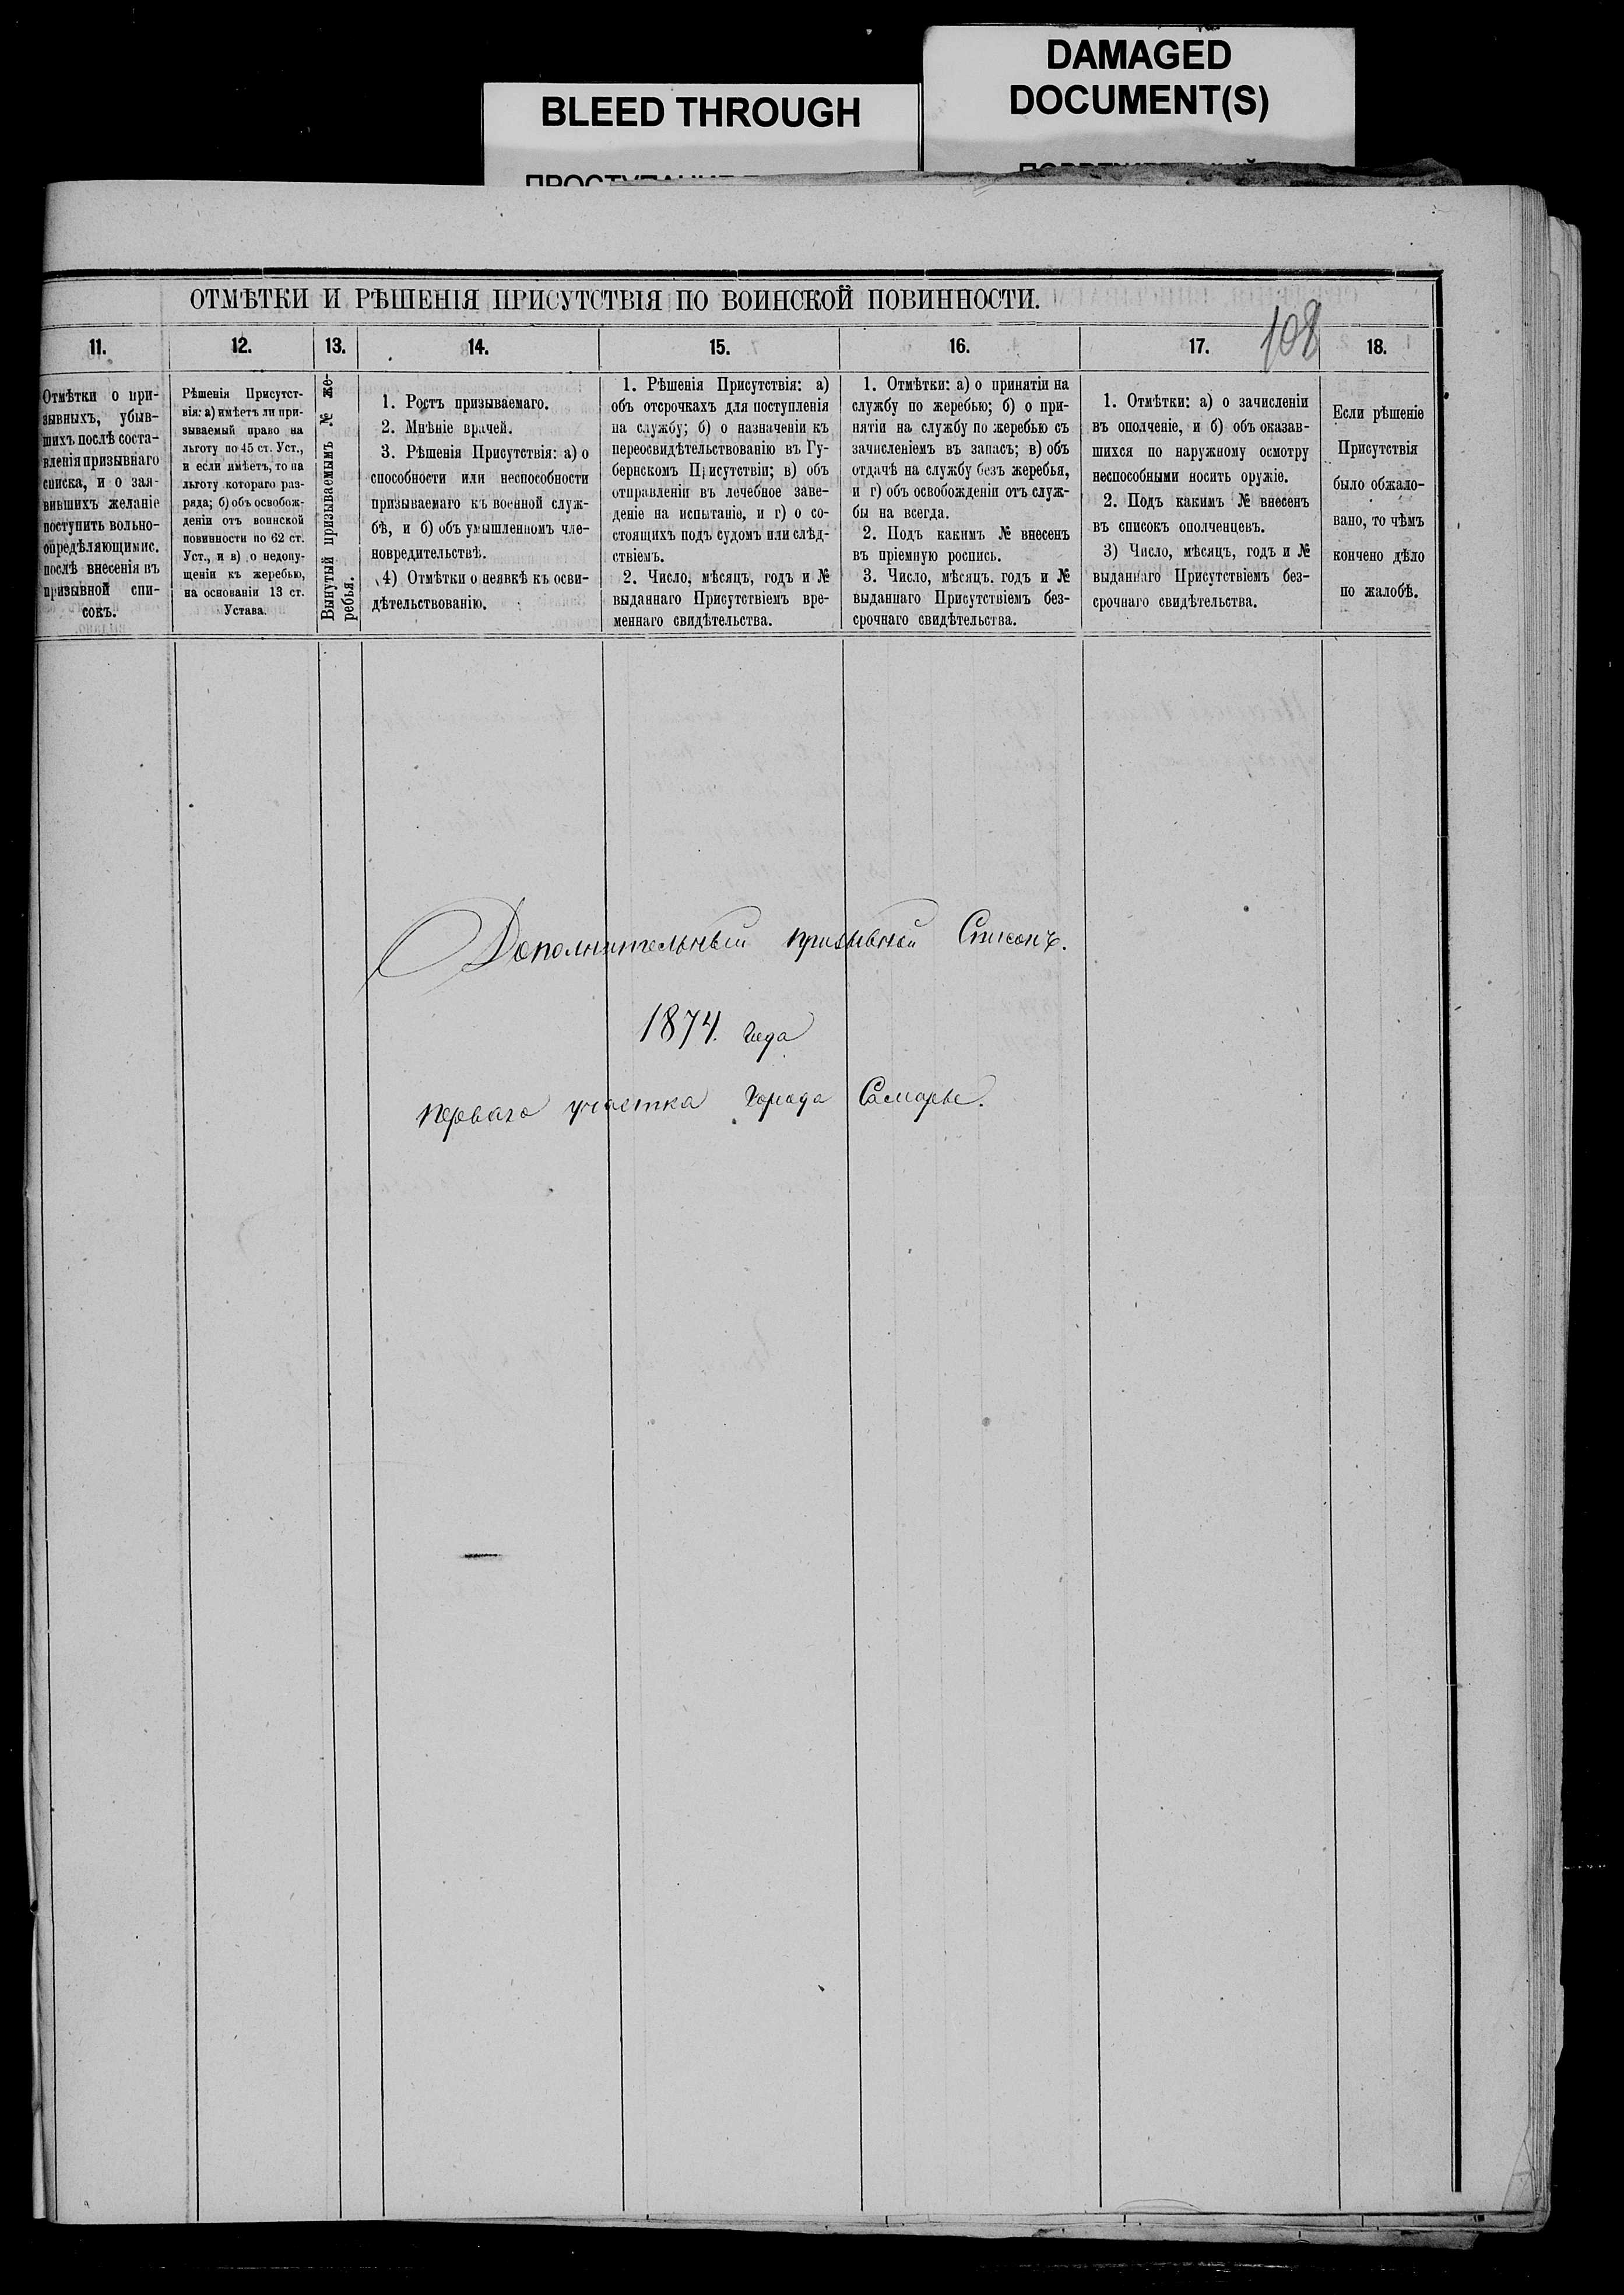 DAMAGED
DOCUMENT(S)
BLEED THROUGH
ОТМѢТКИ И РѢШЕНІЯ ПРИСУТСТВІЯ ПО ВОИНСКОЙ ПОВИННОСТИ.
108
11.
Отмѣтки о при-
зывныхъ, убыв-
шихъ послѣ соста-
вленія призывнаго
списка, и о зая-
вившихъ желаніе
поступить вольно-
опредѣляющимис.
послѣ внесенія въ
призывной спи-
сокъ.
12.
Рѣшенія Присутст-
вія: а) имѣетъ ли при-
зываемый право на
льготу по 45 ст. Уст.,
и если имѣетъ, то на
льготу котораго раз-
ряда; б) объ освобож-
деніи отъ воинской
повинности по 62 ст.
Уст., и в) о недопу-
щеніи къ жеребью,
на основаніи 13 ст.
Устава.
13.
Вынутый призываемымъ № же-
ребья.
14.
1. Ростъ призываемаго.
2. Мнѣніе врачей.
3. Рѣшенія Присутствія: а) о
способности или неспособности
призываемаго къ военной служ-
бѣ, и б) объ умышленномъ чле-
новредительствѣ.
4) Отмѣтки о неявкѣ къ осви-
дѣтельствованію.
15.
1. Рѣшенія Присутствія: а)
объ отсрочкахъ для поступленія
на службу; б) о назначеніи къ
переосвидѣтельствованію въ Гу-
бернскомъ Присутствіи; в) объ
отправленіи въ лечебное заве-
деніе на испытаніе, и г) о со-
стоящихъ подъ судомъ или слѣд-
ствіемъ.
2. Число, мѣсяцъ, годъ и №
выданнаго Присутствіемъ вре-
меннаго свидѣтельства.
16.
1. Отмѣтки: а) о принятіи на
службу по жеребью; б) о при-
нятіи на службу по жеребью съ
зачисленіемъ въ запасъ; в) объ
отдачѣ на службу безъ жеребья,
и г) объ освобожденіи отъ служ-
бы на всегда.
2. Подъ какимъ № внесенъ
въ пріемную роспись.
3. Число, мѣсяцъ. годъ и №
выданнаго Присутствіемъ без-
срочнаго свидѣтельства.
17.
1. Отмѣтки: а) о зачисленіи
въ ополченіе, и б) объ оказав-
шихся по наружному осмотру
неспособными носить оружіе.
2. Подъ какимъ № внесенъ
въ списокъ ополченцевъ.
3) Число, мѣсяцъ, годъ и №
выданнаго Присутствіемъ без-
срочнаго свидѣтельства.
18.
Если рѣшеніе
Присутствія
было обжало-
вано, то чѣмъ
кончено дѣло
по жалобѣ.
Дополнительный призывной Списокъ.
1874. года
перваго участка города Самары.